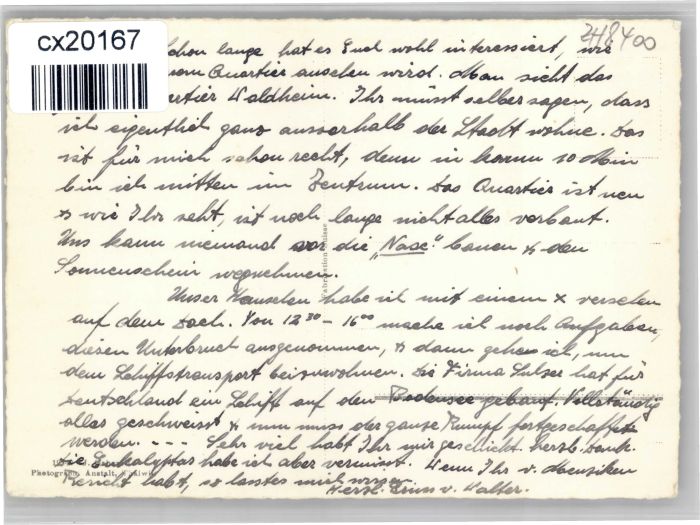 cx20167
248400
Schon lange hat es Euch wohl interessiert, wie
Quartier aussehen wird. Man sieht das
Quartier Waldheim. Ihr müsst selber sagen, dass
ich eigentlich ganz ausserhalb der Stadt wohne. Das
ist für mich schon recht, denn in kaum 10 Min
bin ich mitten im Zentrum. Das Quartier ist neu
& wie Ihr seht, ist noch lange nicht alles verbaut.
Uns kann niemand vor die „Nase" bauen & den
Sonnenschein wegnehmen.
Unser Häuschen habe ich mit einem x versehen
auf dem Dach. Von 12 30 – 16 00 mache ich noch Aufgaben,
diesen Unterbruch ausgenommen, & dann gehe ich, um
dem Schiffstransport beizuwohnen. Die Firma Sulzer hat für
Deutschland ein Schiff auf den Bodensee gebaut. Vollständig
alles geschweisst & nun muss der ganze Rumpf fortgeschafft
werden. --- Sehr viel habt Ihr mir geschickt. herzl. Dank.
Die Eukalyptus habe ich aber vermisst. Wenn Ihr v.
Bericht habt, so lasst es mich wissen.
Herzl. Gruss v. Walter.
Fabrication Suisse
Photograph. Anstalt, Kilchberg